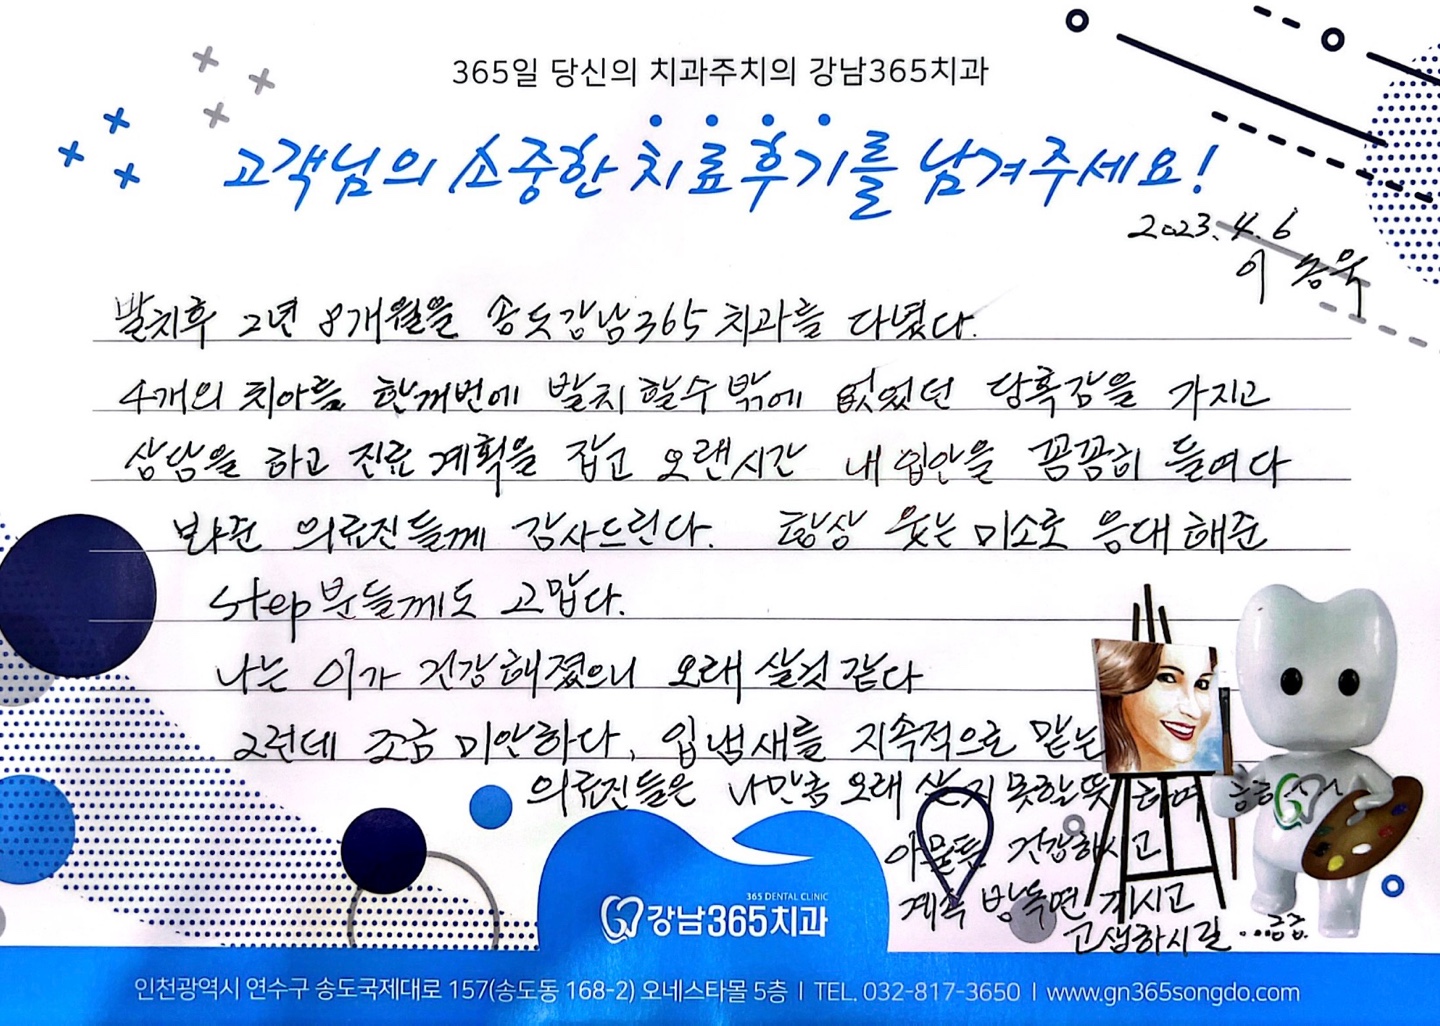 365일 당신의 치과주치의 강남365치과
고객님의 소중한 치료후기를 남겨주세요!
2023. 4. 6
이 동욱
발치후 2년 8개월을 송도강남365 치과를 다녔다.
4개의 치아를 한꺼번에 발치할수 밖에 없었던 당혹감을 가지고
상담을 하고 진료 계획을 잡고 오랜시간 내 입안을 꼼꼼히 들여다
봐준 의료진들께 감사드린다. 항상 웃는 미소로 응대해준
step분들께도 고맙다.
나는 이가 건강해졌으니 오래 살것 같다
그런데 조금 미안하다, 입냄새를 지속적으로 맡는
의료진들은 나만큼 오래 살지 못할 듯 하여
아뭏튼 건강하시고
계속 방독면 끼시고
고생하시길 ...
365 DENTAL CLINIC
강남365치과
인천광역시 연수구 송도국제대로 157(송도동 168-2) 오네스타몰 5층 | TEL. 032-817-3650 | www.gn365songdo.com